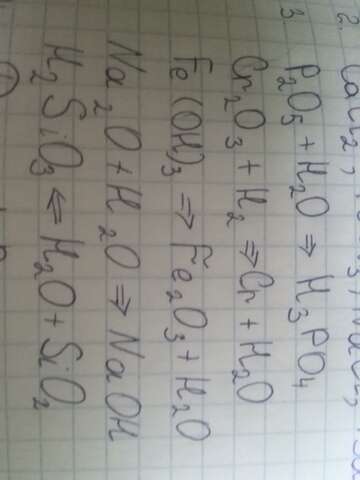 2. CaCl₂,
3 P₂O₅ + H₂O ⇒ H₃PO₄
Cr₂O₃ + H₂ ⇒ Cr + H₂O
Fe(OH)₃ ⇒ Fe₂O₃ + H₂O
Na₂O + H₂O ⇒ NaOH
H₂SiO₃ ⇐ H₂O + SiO₂